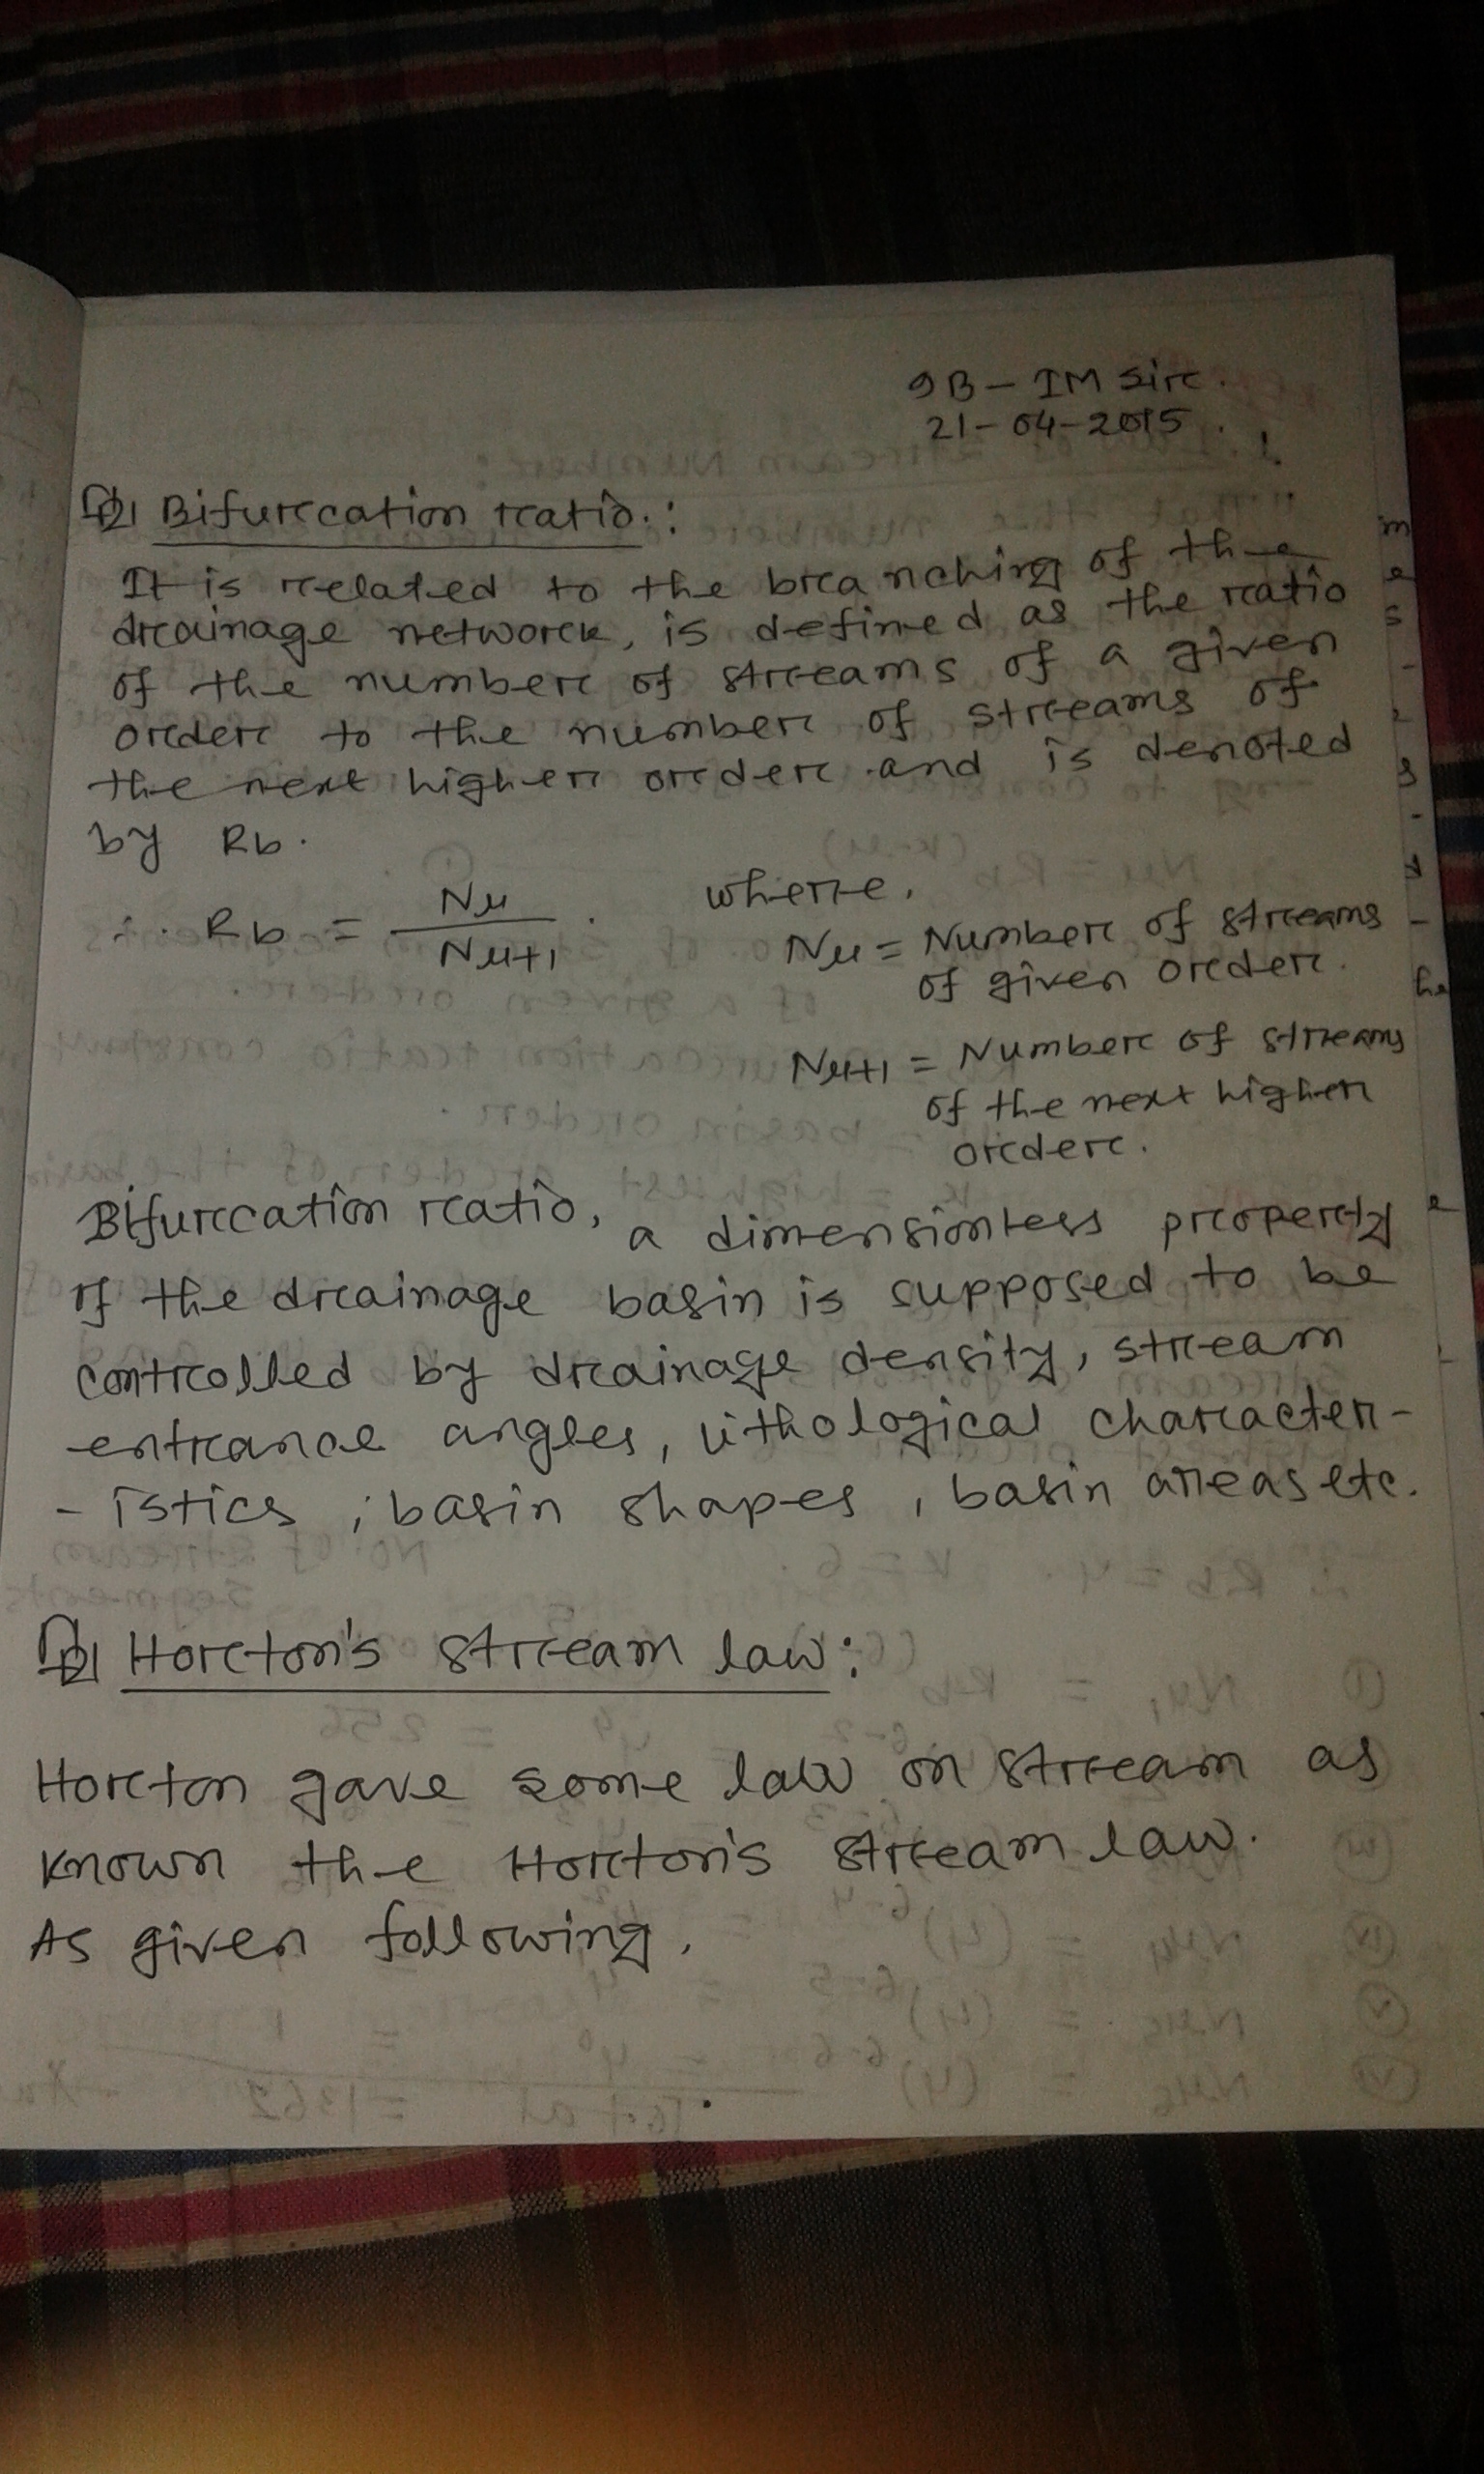 9B - IM Sir.
21-04-2015.
Bifurcation ratio.:
It is related to the branching of the
drainage network, is defined as the ratio
of the number of streams of a given
order to the number of streams of
the next higher order and is denoted
by Rb.
∴ Rb = Nu / Nu+1 . where,
Nu = Number of streams
of given order.
Nu+1 = Number of streams
of the next higher
order.
Bifurcation ratio, a dimensionless property
of the drainage basin is supposed to be
controlled by drainage density, stream
entrance angles, lithological character-
-istics, basin shapes, basin areas etc.
Horton's stream law:
Horton gave some law on stream as
known the Horton's stream law.
As given following,